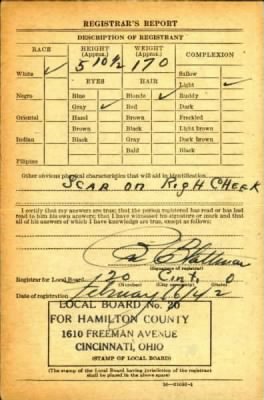 REGISTRAR'S REPORT
DESCRIPTION OF REGISTRANT
RACE HEIGHT (Approx.) WEIGHT (Approx.) COMPLEXION
White ✓ 5 10½ 170 Sallow
EYES HAIR Light ✓
Negro Blue Blonde ✓ Ruddy
Gray ✓ Red Dark
Oriental Hazel Brown Freckled
Brown Black Light brown
Indian Black Gray Dark brown
Bald Black
Filipino
Other obvious physical characteristics that will aid in identification
SCAR ON RIGH CHEEK
I certify that my answers are true; that the person registered has read or has had
read to him his own answers; that I have witnessed his signature or mark and that
all of his answers of which I have knowledge are true, except as follows:
(Signature of registrar)
Registrar for Local Board 120 Cint. O
Date of registration February 16/42
LOCAL BOARD No. 20
FOR HAMILTON COUNTY
1610 FREEMAN AVENUE
CINCINNATI, OHIO
(STAMP OF LOCAL BOARD)
(The stamp of the Local Board having jurisdiction of the registrant
shall be placed in the above space)